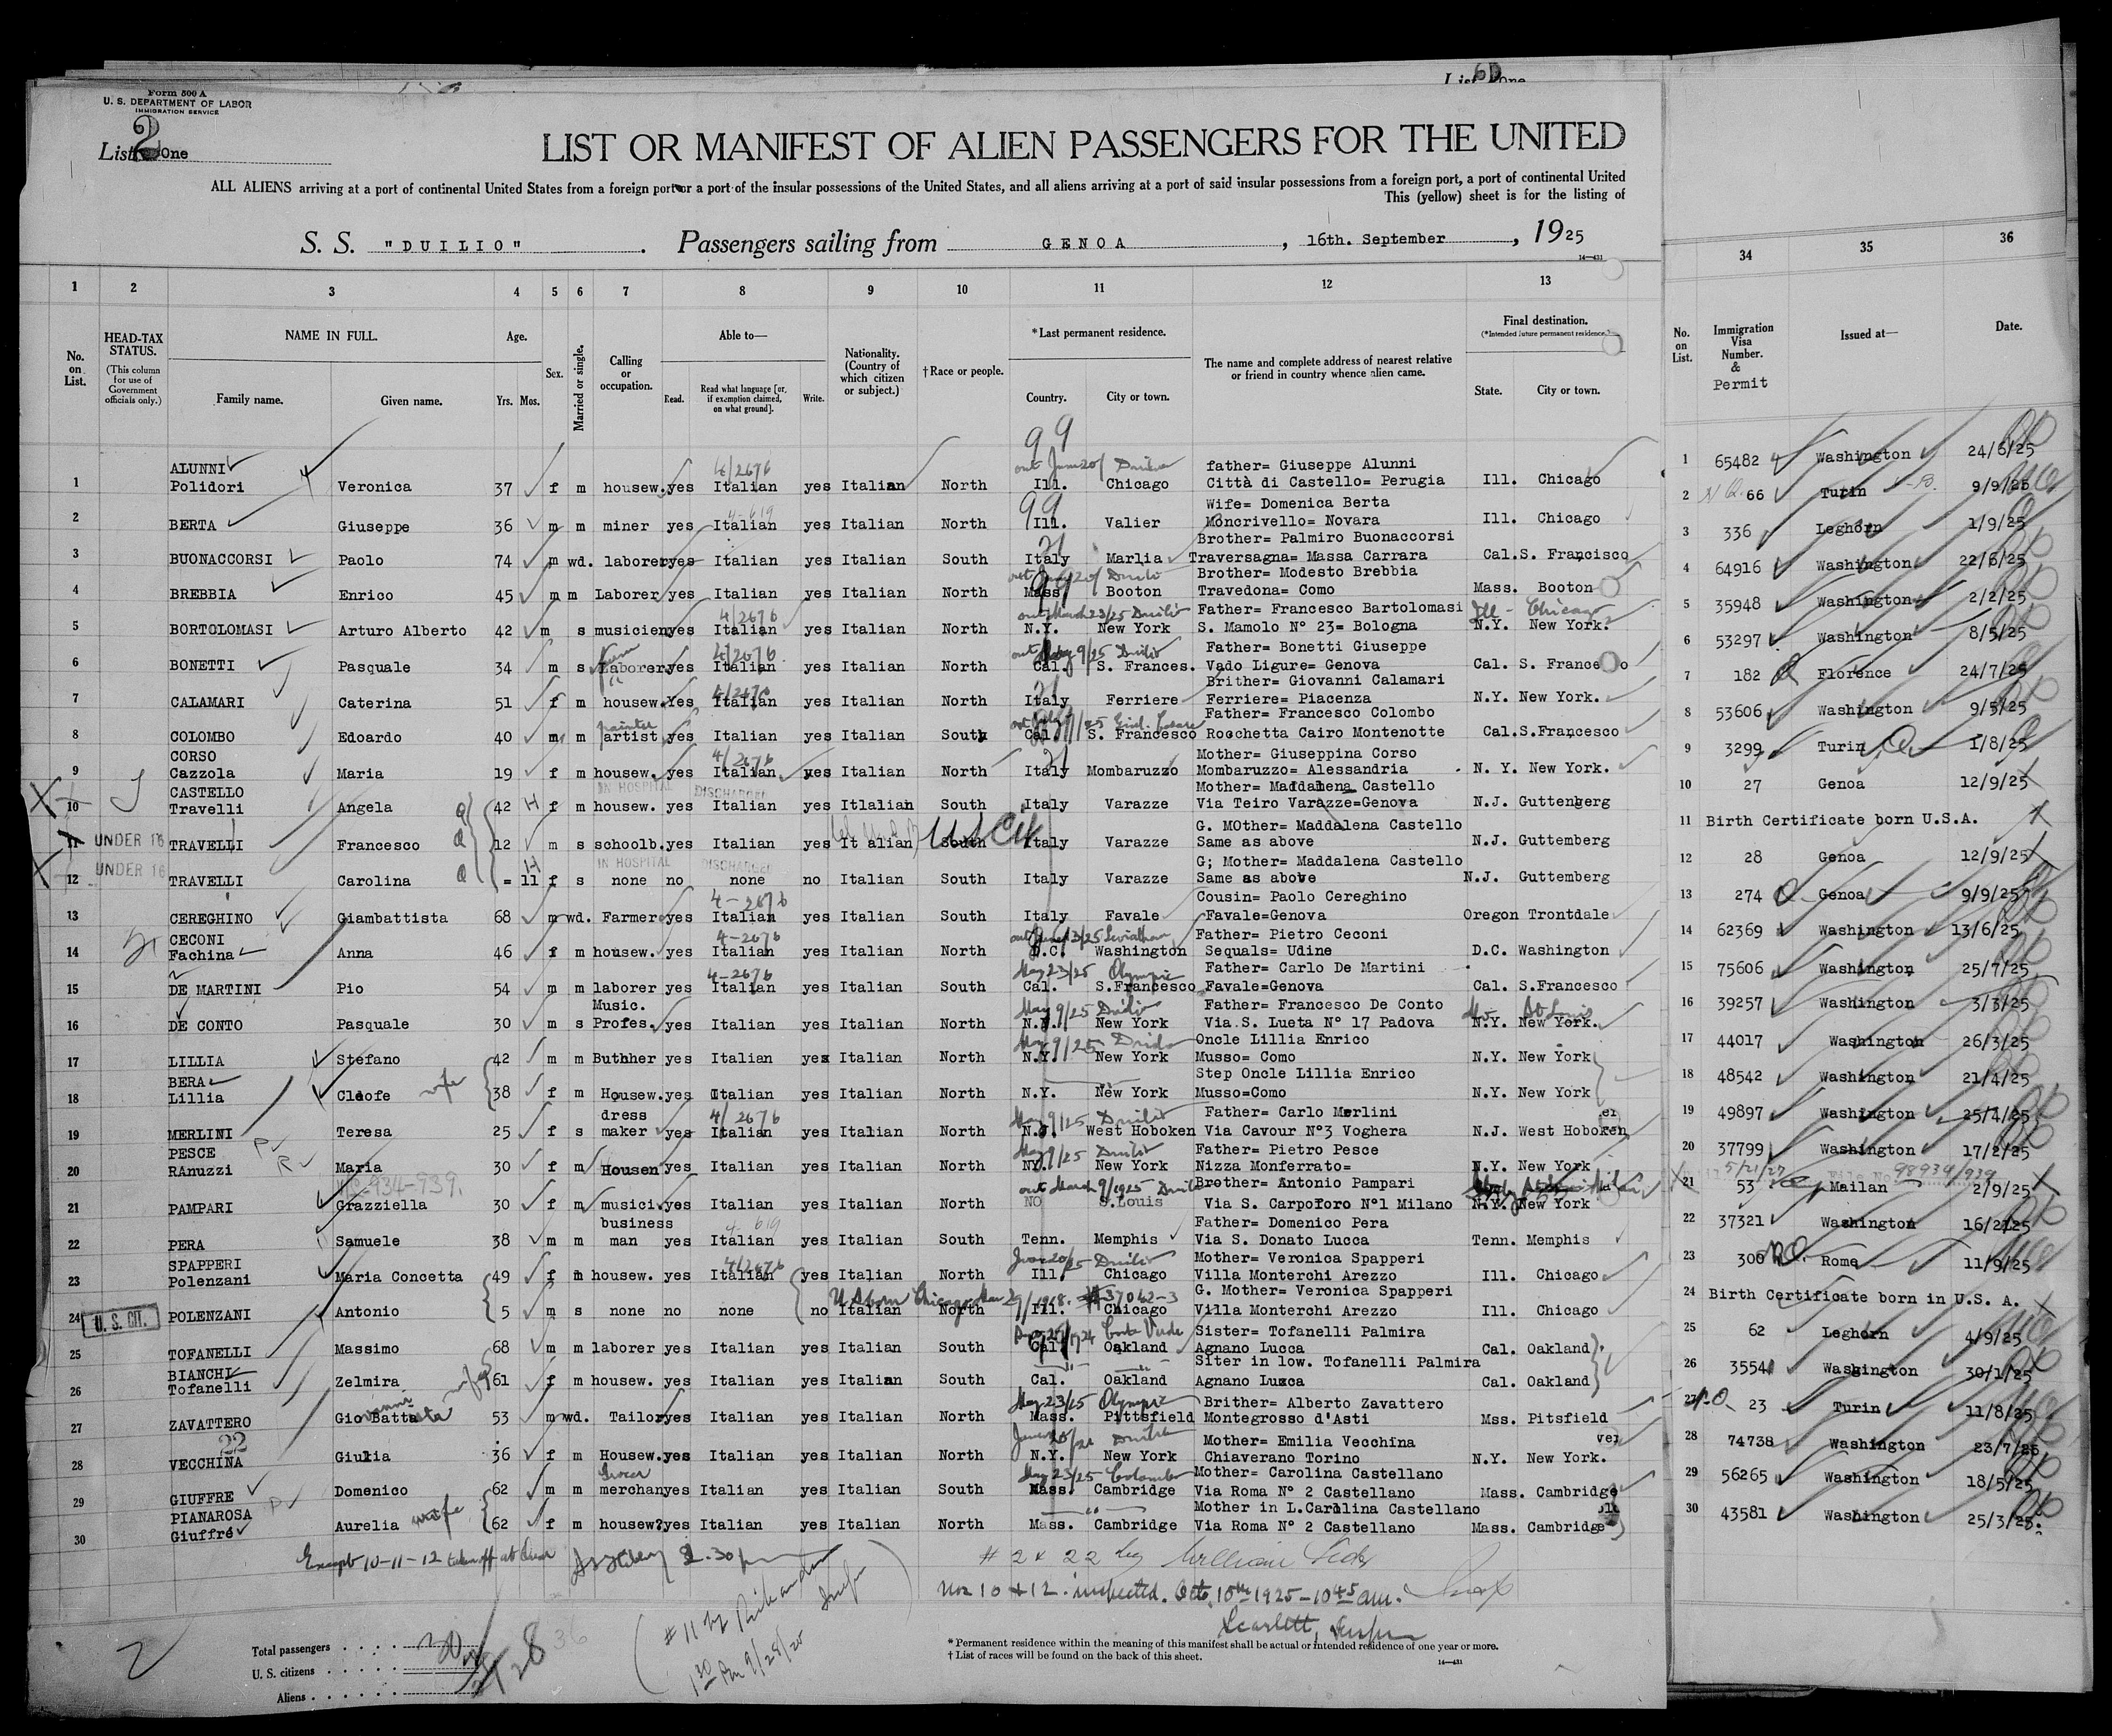 List 60 One
Form 500 A
U. S. DEPARTMENT OF LABOR
IMMIGRATION SERVICE
List 2 One
LIST OR MANIFEST OF ALIEN PASSENGERS FOR THE UNITED
ALL ALIENS arriving at a port of continental United States from a foreign port or a port of the insular possessions of the United States, and all aliens arriving at a port of said insular possessions from a foreign port, a port of continental United
This (yellow) sheet is for the listing of
S. S. "DUILIO" . Passengers sailing from GENOA , 16th. September , 1925
1 2 3 4 5 6 7 8 9 10 11 12 13 34 35 36
No. on List. HEAD-TAX STATUS. (This column for use of Government officials only.) NAME IN FULL. Family name. Given name. Age. Yrs. Mos. Sex. Married or single. Calling or occupation. Able to— Read. Read what language [or, if exemption claimed, on what ground]. Write. Nationality. (Country of which citizen or subject.) †Race or people. *Last permanent residence. Country. City or town. The name and complete address of nearest relative or friend in country whence alien came. Final destination. (*Intended future permanent residence.) State. City or town. No. on List. Immigration Visa Number. & Permit Issued at— Date.
99
ALUNNI 4/2676 out June 20/ Duilio father= Giuseppe Alunni
1 Polidori Veronica 37 f m housew. yes Italian yes Italian North Ill. Chicago Città di Castello= Perugia Ill. Chicago 1 65482 Washington 24/6/25
99 4-619 Wife= Domenica Berta
2 BERTA Giuseppe 36 m m miner yes Italian yes Italian North Ill. Valier Moncrivello= Novara Ill. Chicago 2 66 Turin 9/9/25
21 Brother= Palmiro Buonaccorsi
3 BUONACCORSI Paolo 74 m wd. laborer yes Italian yes Italian South Italy Marlia Traversagna= Massa Carrara Cal. S. Francisco 3 336 Leghorn 1/9/25
Brother= Modesto Brebbia
4 BREBBIA Enrico 45 m m Laborer yes Italian yes Italian North Mass. Booton Travedona= Como Mass. Booton 4 64916 Washington 22/6/25
4/2676 out March 23/25 Duilio Father= Francesco Bartolomasi Ill - Chicago
5 BORTOLOMASI Arturo Alberto 42 m s musicien yes Italian yes Italian North N.Y. New York S. Mamolo N° 23= Bologna N.Y. New York. 5 35948 Washington 2/2/25
4/2676 out May 9/25 Duilio Father= Bonetti Giuseppe
6 BONETTI Pasquale 34 m s Laborer yes Italian yes Italian North Cal. S. Frances. Vado Ligure= Genova Cal. S. France o 6 53297 Washington 8/5/25
4/2676 21 Brither= Giovanni Calamari
7 CALAMARI Caterina 51 f m housew. Yes Italian yes Italian North Italy Ferriere Ferriere= Piacenza N.Y. New York. 7 182 Florence 24/7/25
painter Father= Francesco Colombo
8 COLOMBO Edoardo 40 m m artist yes Italian yes Italian South Cal. S. Francesco Rocchetta Cairo Montenotte Cal. S.Francesco 8 53606 Washington 9/5/25
CORSO 4/2676 21 Mother= Giuseppina Corso
9 Cazzola Maria 19 f m housew. yes Italian yes Italian North Italy Mombaruzzo Mombaruzzo= Alessandria N. Y. New York. 9 3299 Turin 1/8/25
CASTELLO IN HOSPITAL DISCHARGED Mother= Maddalena Castello
10 Travelli Angela 42 f m housew. yes Italian yes Itlalian South Italy Varazze Via Teiro Varazze=Genova N.J. Guttenberg 10 27 Genoa 12/9/25
G. MOther= Maddalena Castello
11 UNDER 16 TRAVELLI Francesco 12 m s schoolb. yes Italian yes It alian South U S Cit Italy Varazze Same as above N.J. Guttemberg 11 Birth Certificate born U.S.A.
UNDER 16 IN HOSPITAL DISCHARGED G; Mother= Maddalena Castello
12 TRAVELLI Carolina = 11 f s none no none no Italian South Italy Varazze Same as above N.J. Guttemberg 12 28 Genoa 12/9/25
4-2676 Cousin= Paolo Cereghino
13 CEREGHINO Giambattista 68 m wd. Farmer yes Italian yes Italian South Italy Favale Favale=Genova Oregon Trontdale 13 274 Genoa 9/9/25
CECONI 4-2676 Leviathan Father= Pietro Ceconi
14 Fachina Anna 46 f m housew. yes Italian yes Italian North D.C. Washington Sequals= Udine D.C. Washington 14 62369 Washington 13/6/25
4-2676 May 23/25 Olympic Father= Carlo De Martini
15 DE MARTINI Pio 54 m m laborer yes Italian yes Italian South Cal. S.Francesco Favale=Genova Cal. S.Francesco 15 75606 Washington 25/7/25
Music. May 9/25 Duilio Father= Francesco De Conto Mo. St Louis
16 DE CONTO Pasquale 30 m s Profes. yes Italian yes Italian North N.Y. New York Via S. Lueta N° 17 Padova N.Y. New York. 16 39257 Washington 3/3/25
May 9/25 Duilio Oncle Lillia Enrico
17 LILLIA Stefano 42 m m Buthher yes Italian yes Italian North N.Y. New York Musso= Como N.Y. New York 17 44017 Washington 26/3/25
BERA Step Oncle Lillia Enrico
18 Lillia Cleofe wife 38 f m Housew. yes Italian yes Italian North N.Y. New York Musso=Como N.Y. New York 18 48542 Washington 21/4/25
dress 4/2676 May 9/25 Duilio Father= Carlo Merlini
19 MERLINI Teresa 25 f s maker yes Italian yes Italian North N.J. West Hoboken Via Cavour N°3 Voghera N.J. West Hoboken 19 49897 Washington 25/4/25
PESCE May 9/25 Duilio Father= Pietro Pesce
20 RAnuzzi Maria 30 f m Housen yes Italian yes Italian North NY. New York Nizza Monferrato= N.Y. New York 20 37799 Washington 17/2/25
934-939. out March 9/1925 Duilio Brother= Antonio Pampari 5/21/27 File No 98939/939
21 PAMPARI Grazziella 30 f m musici. yes Italian yes Italian North NO S.Louis Via S. Carpoforo N°1 Milano N.Y. New York 21 53 Mailan 2/9/25
business 4-619 Father= Domenico Pera
22 PERA Samuele 38 m m man yes Italian yes Italian South Tenn. Memphis Via S. Donato Lucca Tenn. Memphis 22 37321 Washington 16/2/25
SPAPPERI 4/2676 June 20/25 Duilio Mother= Veronica Spapperi
23 Polenzani Maria Concetta 49 f m housew. yes Italian yes Italian North Ill. Chicago Villa Monterchi Arezzo Ill. Chicago 23 300 Rome 11/9/25
US born Chicago G. Mother= Veronica Spapperi
24 U. S. CIT. POLENZANI Antonio 5 m s none no none no Italian North Ill. Chicago Villa Monterchi Arezzo Ill. Chicago 24 Birth Certificate born in U.S. A.
Conte Verde Sister= Tofanelli Palmira
25 TOFANELLI Massimo 68 m m laborer yes Italian yes Italian South Cal. Oakland Agnano Lucca Cal. Oakland 25 62 Leghorn 4/9/25
BIANCHI Siter in low. Tofanelli Palmira
26 Tofanelli Zelmira wife 61 f m housew. yes Italian yes Italian South Cal. Oakland Agnano Lucca Cal. Oakland 26 35541 Washington 30/1/25
May 23/25 Olympic Brither= Alberto Zavattero
27 ZAVATTERO Gio Batta 53 m wd. Tailor yes Italian yes Italian North Mass. Pittsfield Montegrosso d'Asti Mss. Pitsfield 27 23 Turin 11/8/25
22 Mother= Emilia Vecchina
28 VECCHINA Giulia 36 f m Housew. yes Italian yes Italian North N.Y. New York Chiaverano Torino N.Y. New York. 28 74738 Washington 23/7/25
Grocer May 23/25 Colombo Mother= Carolina Castellano
29 GIUFFRE Domenico 62 m m merchan yes Italian yes Italian South Mass. Cambridge Via Roma N° 2 Castellano Mass. Cambridge 29 56265 Washington 18/5/25
PIANAROSA Mother in L.Carolina Castellano
30 Giuffré Aurelia wife 62 f m housew? yes Italian yes Italian North Mass. Cambridge Via Roma N° 2 Castellano Mass. Cambridge 30 43581 Washington 25/3/25.
Except 10-11-12 taken off at 2.30 pm
# 2 & 22 by William
Nos 10 & 12 inspected. Oct. 10th 1925-1045 am.
Scarlett, Inspr
# 11 by Richardson Inspr
130 Pm 9/28/25
2
Total passengers . . . . 30
U. S. citizens . . . . .
Aliens . . . . . . 28
*Permanent residence within the meaning of this manifest shall be actual or intended residence of one year or more.
†List of races will be found on the back of this sheet.